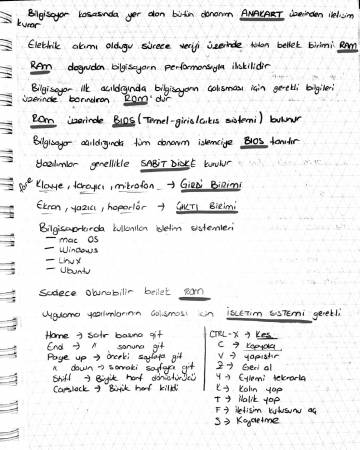 Bilgisayar kasasında yer alan bütün donanım ANAKART üzerinden iletişim
kurar
Elektrik akımı olduğu sürece veriyi üzerinde tutan bellek birimi RAM
RAM doğrudan bilgisayarın performansıyla ilişkilidir
Bilgisayar ilk açıldığında bilgisayarın çalışması için gerekli bilgileri
üzerinde barındıran ROM'dur
ROM üzerinde BIOS (Temel-giriş/çıkış sistemi) bulunur
Bilgisayar açıldığında tüm donanım işlemciye BIOS tanıtır
Yazılımlar genellikle SABİT DİSKE kurulur
Klavye, tarayıcı, mikrofon → GİRDİ BİRİMİ
Ekran, yazıcı, hoparlör → ÇIKTI BİRİMİ
Bilgisayarlarda kullanılan işletim sistemleri
— mac OS
— Windows
— Linux
— Ubuntu
Sadece okunabilir bellek ROM
Uygulama yazılımlarının çalışması için İŞLETİM SİSTEMİ gerekli
Home → Satır başına git
End → " sonuna git
Page up → önceki sayfaya git
" down → sonraki sayfaya git
Shift → Büyük harf dönüştürücü
Capslock → Büyük harf kilidi
CTRL-X → Kes
C → Kopyala
V → yapıştır
Z → Geri al
Y → Eylemi tekrarla
K → Kalın yap
T → İtalik yap
F → iletişim kutusunu aç
S → Kaydetme